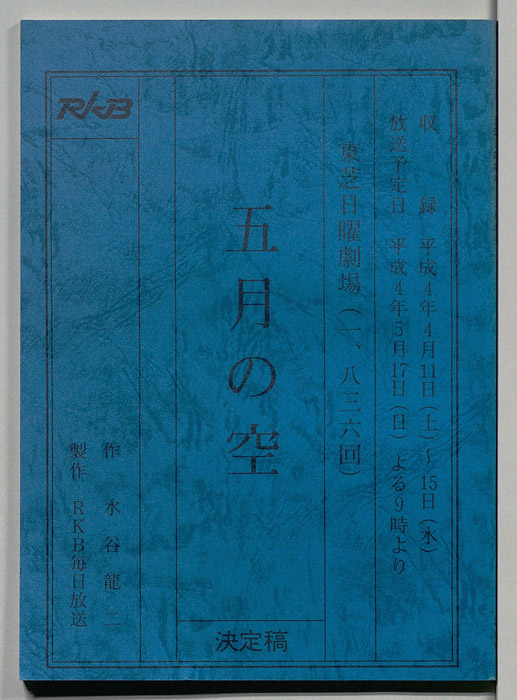 収録 平成4年4月11日(土)~15日(水)
放送予定日 平成4年5月17日(日)よる9時より
東芝日曜劇場(一、八三六回)
五月の空
決定稿
作 水谷龍二
製作 RKB毎日放送
RKB